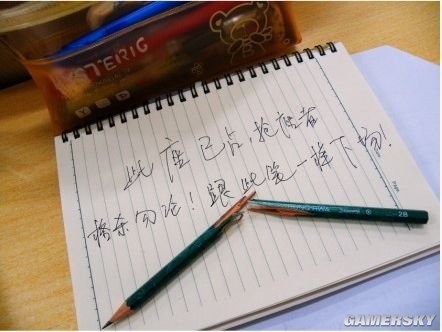 TTERIG
此座已占,抢座者
格杀勿论!跟此笔一样下场!
2B
GAMERSKY